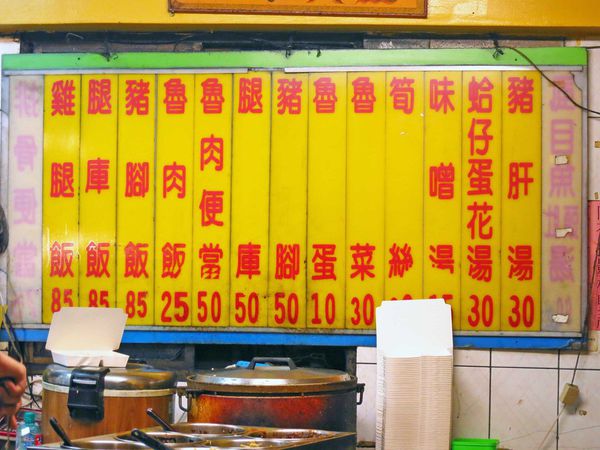 排骨便當
雞腿飯 85
腿庫飯 85
豬腳飯 85
魯肉飯 25
魯肉便當 50
腿庫 50
豬腳 50
魯蛋 10
魯菜 30
筍絲
味噌湯
蛤仔蛋花湯 30
豬肝湯 30
虱目魚肚湯